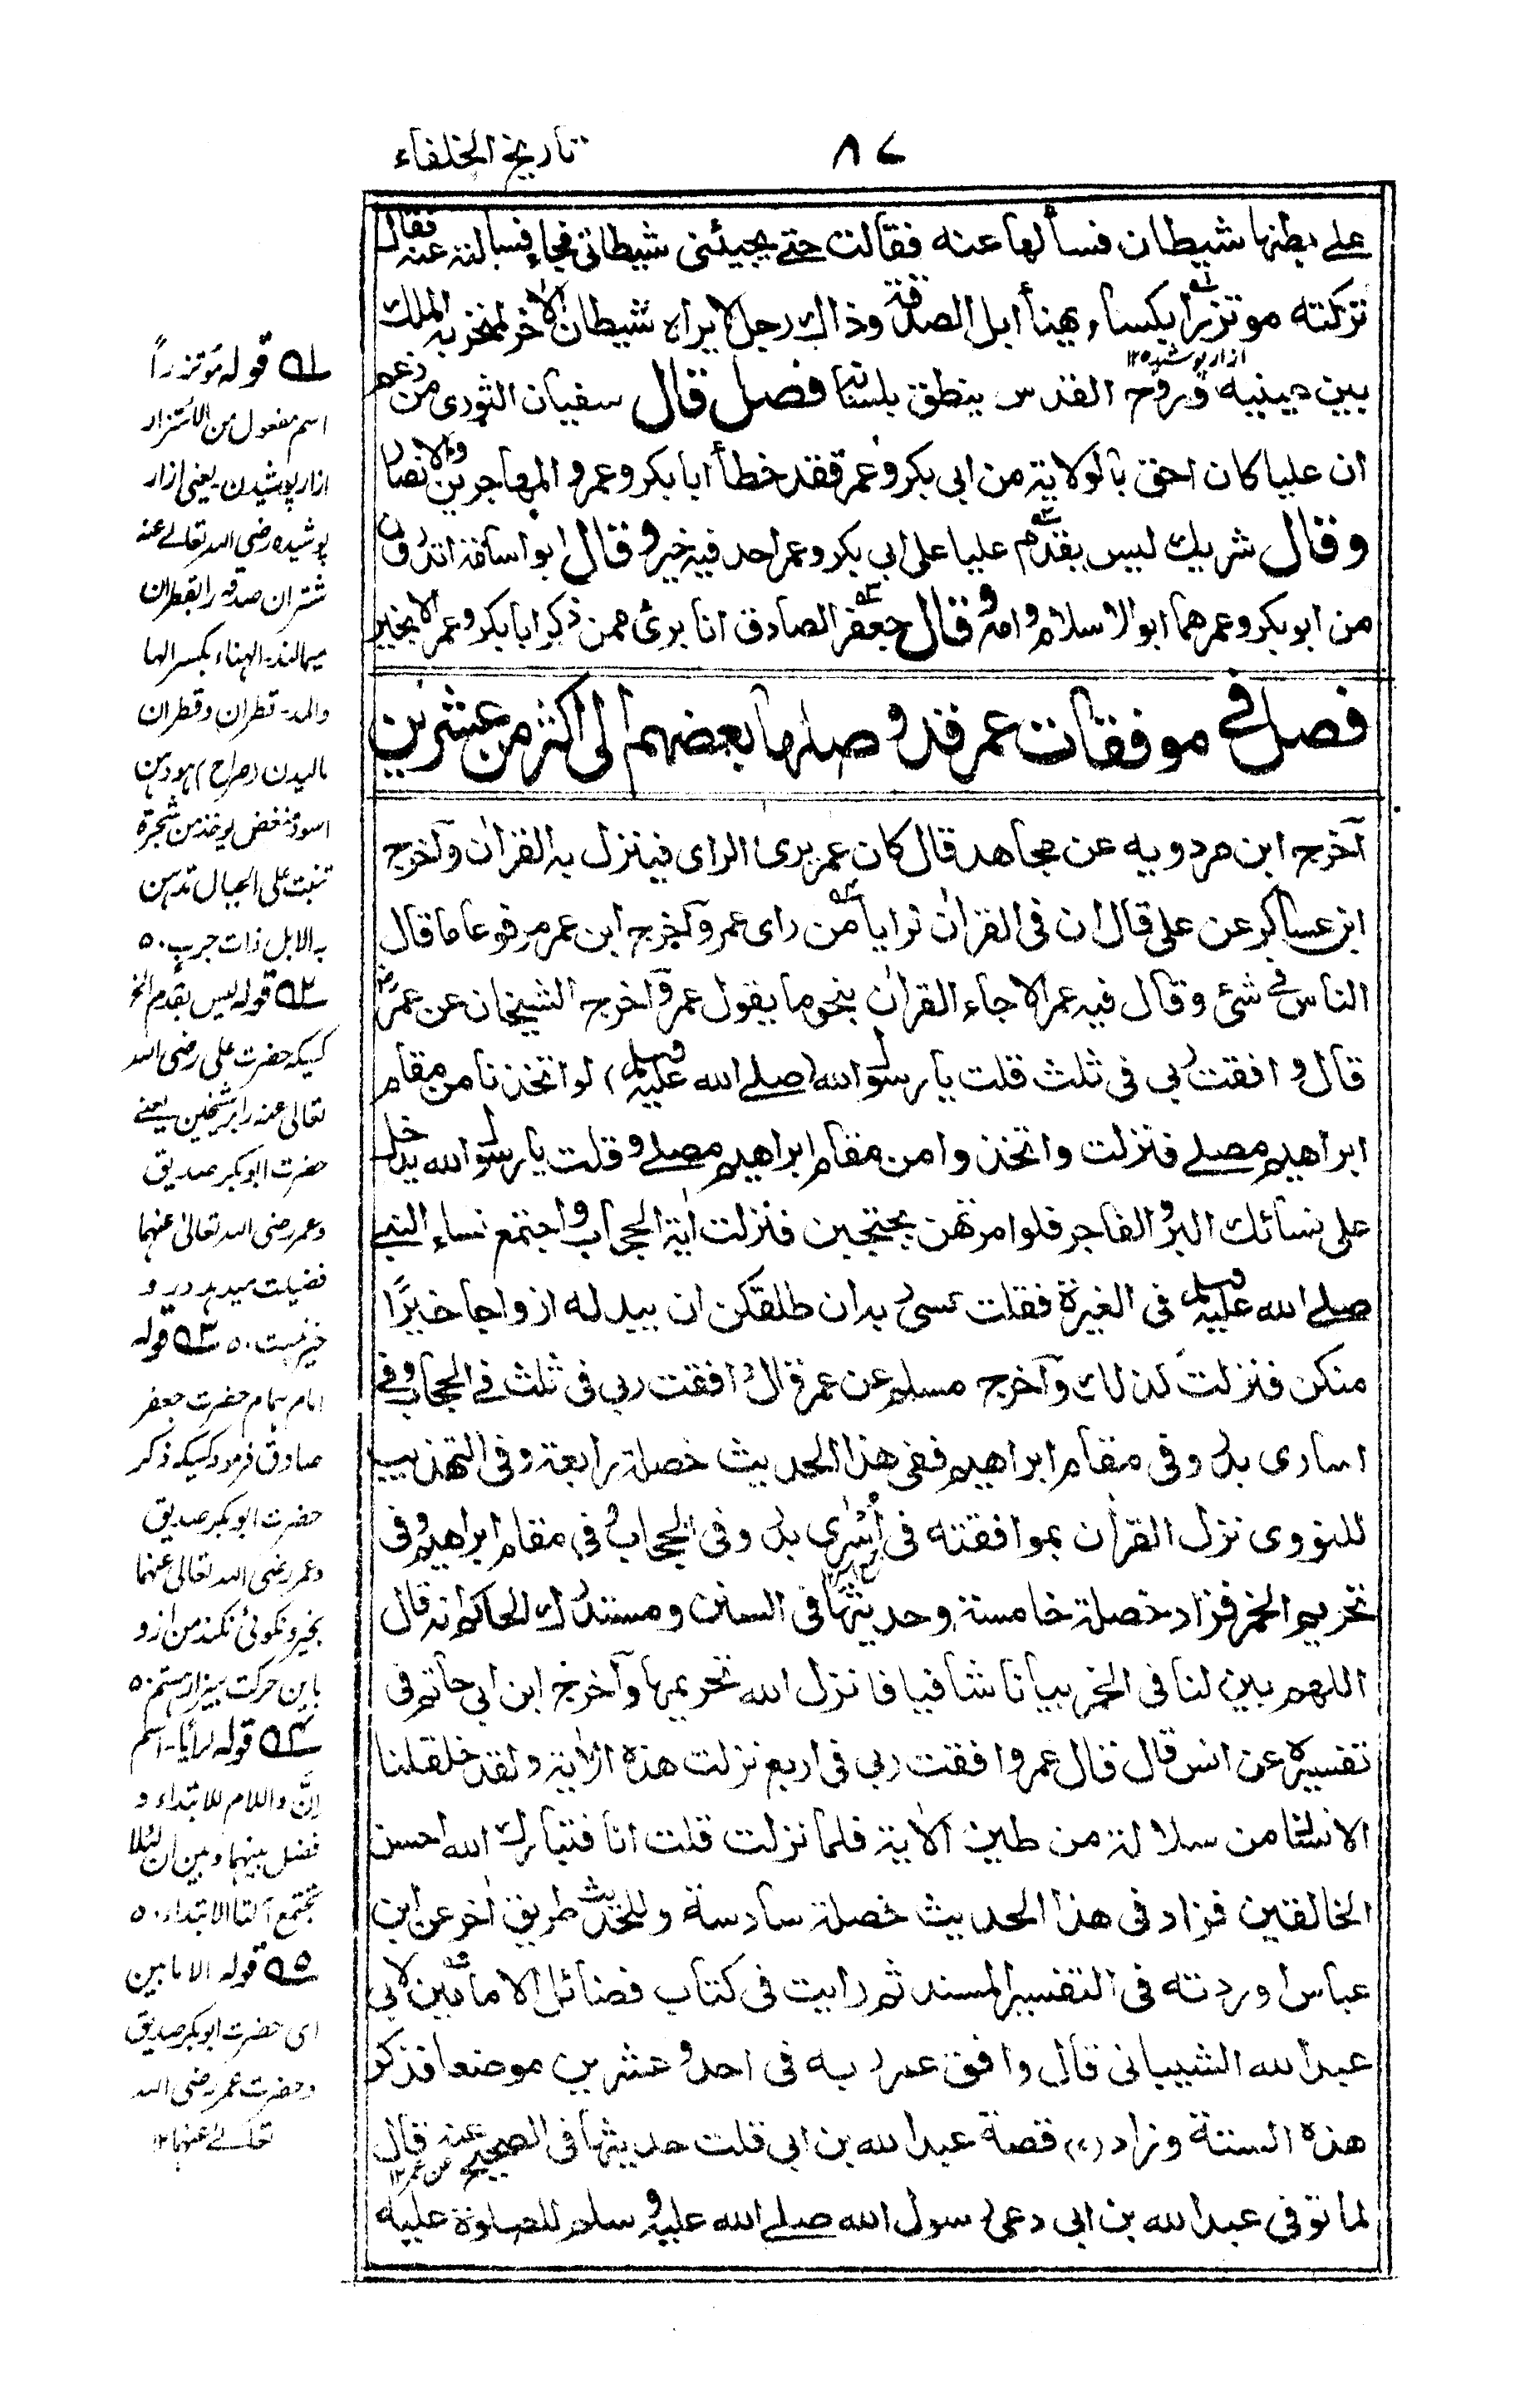 تاريخ الخلفاء
٨٧
على بطنها شيطان فسألها عنه فقالت حتے يجيئنى شيطانى فجاء فسألته عنه فقال
تركته موتزرا بكساء يهنأ ابل الصدقة وذاك رجل لا يراه شيطان الا خر لمنخريه الملك
ازار پوشيده ١٢
بين عينيه وروح القدس ينطق بلسانه فصل قال سفيان الثورى من زعم
ان عليا كان احق بالولاية من ابى بكر وعمر فقد خطأ ابا بكر وعمر والمهاجرين والانصار
وقال شريك ليس يقدم عليا على ابى بكر وعمر احد فيه خير وقال ابو اسامة اتدرون
من ابو بكر وعمر هما ابو الاسلام وامه وقال جعفر الصادق انا برئ ممن ذكر ابا بكر وعمر الا بخير
فصل فے موفقات عمر قد وصلها بعضهم الى اكثر من عشرين
آخرج ابن مردويه عن مجاهد قال كان عمر يرى الراى فينزل به القران وآخرج
ابن عساكر عن على قال ان فى القران لرايا من راى عمر وآخرج ابن عمر مرفوعا ما قال
الناس فے شئ وقال فيه عمر الا جاء القران بنحو ما يقول عمر وآخرج الشيخان عن عمر رض
قال وافقت ربى فى ثلث قلت يا رسول الله (صلے الله عليه وسلم) لو اتخذنا من مقام
ابراهيم مصلے فنزلت واتخذوا من مقام ابراهيم مصلے وقلت يا رسول الله يدخل
على نسائك البر والفاجر فلو امرتهن يحتجبن فنزلت اية الحجاب واجتمع نساء النبے
صلے الله عليه وسلم فى الغيرة فقلت عسى ربه ان طلقكن ان يبدله ازواجا خيرًا
منكن فنزلت كذلك وآخرج مسلم عن عمر قال وافقت ربى فى ثلث فے الحجاب وفے
اسارى بدر وفى مقام ابراهيم ففى هذا الحديث خصلة رابعة وفى التهذيب
للنووى نزل القران بموافقته فى اسرى بدر وفى الحجاب وفى مقام ابراهيم وفى
تحريم الخمر فزاد خصلة خامسة وحديثها فى السنن ومستدرك الحاكم انه قال
اللهم بين لنا فى الخمر بيانا شافيا فانزل الله تحريمها وآخرج ابن ابى حاتم فى
تفسيره عن انس قال قال عمر وافقت ربى فى اربع نزلت هذه الاية ولقد خلقنا
الانسان من سلالة من طين الاية فلما نزلت قلت انا فتبارك الله احسن
الخالقين فزاد فى هذا الحديث خصلة سادسة وللحديث طريق اخر عن ابن
عباس اوردته فى التفسير المسند ثم رايت فى كتاب فضائل الامامين لابى
عبد الله الشيبانى قال وافق عمر ربه فى احد وعشرين موضعا فذكر
هذه الستة وزاد (٧) قصة عبد الله بن ابى قلت حديثها فى الصحيح عنه قال
عن عمر ١٢
لما توفى عبد الله بن ابى دعى رسول الله صلے الله عليه وسلم للصلوة عليه
١ے قوله موتزراً
اسم مفعول من الاتزار
ازار پوشيدن۔ يعنى ازار
پوشيده رضى الله تعالے عنه
شتران صدقه را بقطران
ميمالند۔ الهناء بكسر الها
والمد۔ قطران وقطران
ماليدن (صراح) هو دهن
اسود يوخذ من شجرة
تنبت على الجبال تدهن
به الابل ذات جرب ٥
٢ے قوله ليس يقدم الخ
كسيكه حضرت على رضى الله
تعالى عنه را بر شيخين يعنے
حضرت ابو بكر صديق
وعمر رضى الله تعالى عنهما
فضيلت ميدهد در و
خير نيست ٥ ٣ے قوله
امام همام حضرت جعفر
صادق فرمود كسيكه ذكر
حضرت ابو بكر صديق
وعمر رضى الله تعالى عنهما
بخير ونكوئى نكند من ازو
باين حركت بيزار هستم ٥
٤ے قوله لرايا۔ اسم
اِنَّ واللام للابتداء و
فصل بينهما وبين ان لئلا
تجتمع آلتا الابتداء ٥
٥ے قوله الامامين
اى حضرت ابو بكر صديق
وحضرت عمر رضى الله
تعالے عنهما ١٢